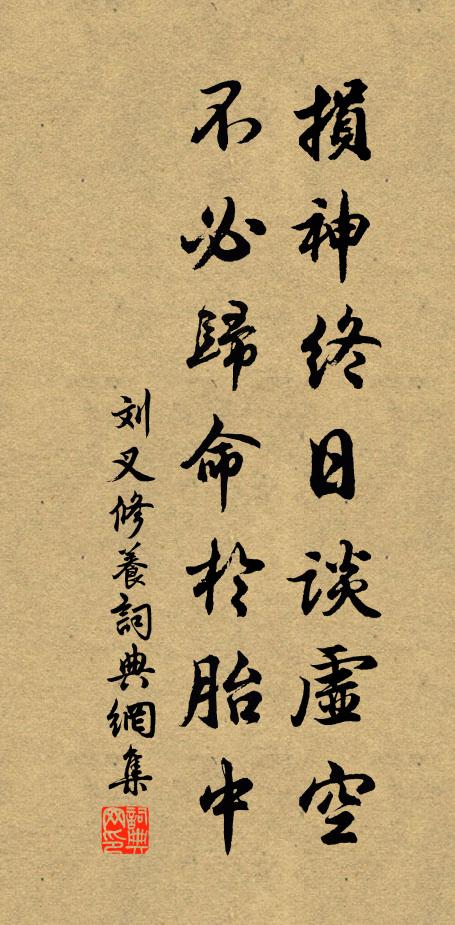 損神終日談虛空
不必歸命於胎中
刘叉修養詞典網集
詞典網印